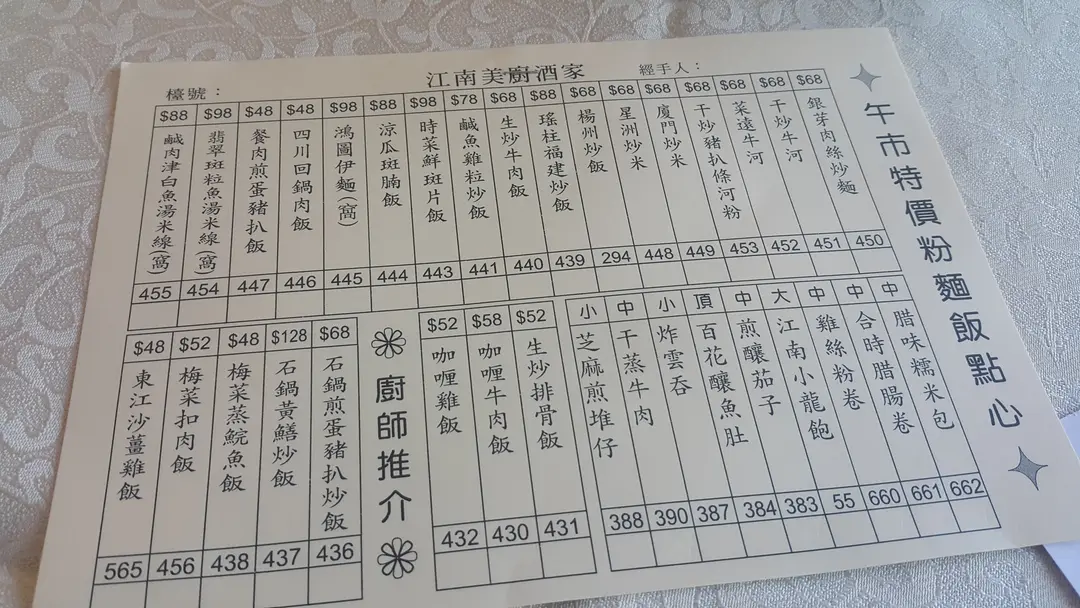 江南美廚酒家
檯號：
經手人：
午市特價粉麵飯點心
$68 銀芽肉絲炒麵 450
$68 干炒牛河 451
$68 菜遠牛河 452
$68 干炒豬扒條河粉 453
$68 廈門炒米 449
$68 星洲炒米 448
$68 楊州炒飯 294
$88 瑤柱福建炒飯 439
$68 生炒牛肉飯 440
$78 鹹魚雞粒炒飯 441
$98 時菜鮮斑片飯 443
$88 涼瓜斑腩飯 444
$98 鴻圖伊麵(窩) 445
$48 四川回鍋肉飯 446
$48 餐肉煎蛋豬扒飯 447
$98 翡翠斑粒魚湯米線(窩) 454
$88 鹹肉津白魚湯米線(窩) 455
中 腊味糯米包 662
中 合時腊腸卷 661
中 雞絲粉卷 660
大 江南小龍飽 55
中 煎釀茄子 383
頂 百花釀魚肚 384
小 炸雲吞 387
中 干蒸牛肉 390
小 芝麻煎堆仔 388
$52 生炒排骨飯 431
$58 咖喱牛肉飯 430
$52 咖喱雞飯 432
廚師推介
$68 石鍋煎蛋豬扒炒飯 436
$128 石鍋黃鱔炒飯 437
$48 梅菜蒸鯇魚飯 438
$52 梅菜扣肉飯 456
$48 東江沙薑雞飯 565